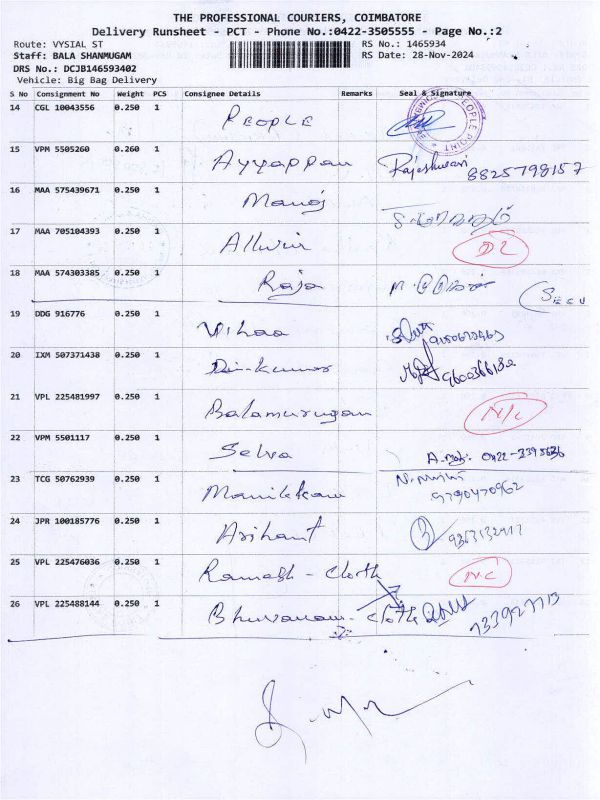 THE PROFESSIONAL COURIERS, COIMBATORE
Delivery Runsheet - PCT - Phone No.:0422-3505555 - Page No.:2
Route: VYSIAL ST RS No.: 1465934
Staff: BALA SHANMUGAM RS Date: 28-Nov-2024
DRS No.: DCJB146593402
Vehicle: Big Bag Delivery
S No Consignment No Weight PCS Consignee Details Remarks Seal & Signature
14 CGL 10043556 0.250 1 PEOPLE
15 VPM 5505260 0.260 1 Ayyappan Rajeshwari 8825798157
16 MAA 575439671 0.250 1 Manoj
17 MAA 705104393 0.250 1 Allwin DL
18 MAA 574303385 0.250 1 Raja
19 DDG 916776 0.250 1 Vihaa
20 IXM 507371438 0.250 1 Dinkumar
21 VPL 225481997 0.250 1 Balamurugan N/C
22 VPM 5501117 0.250 1 Selva
23 TCG 50762939 0.250 1 Manikkam 9790470962
24 JPR 100185776 0.250 1 Arihant
25 VPL 225476036 0.250 1 Ramesh - Cloth NC
26 VPL 225488144 0.250 1 Bhuvanam - Cloth